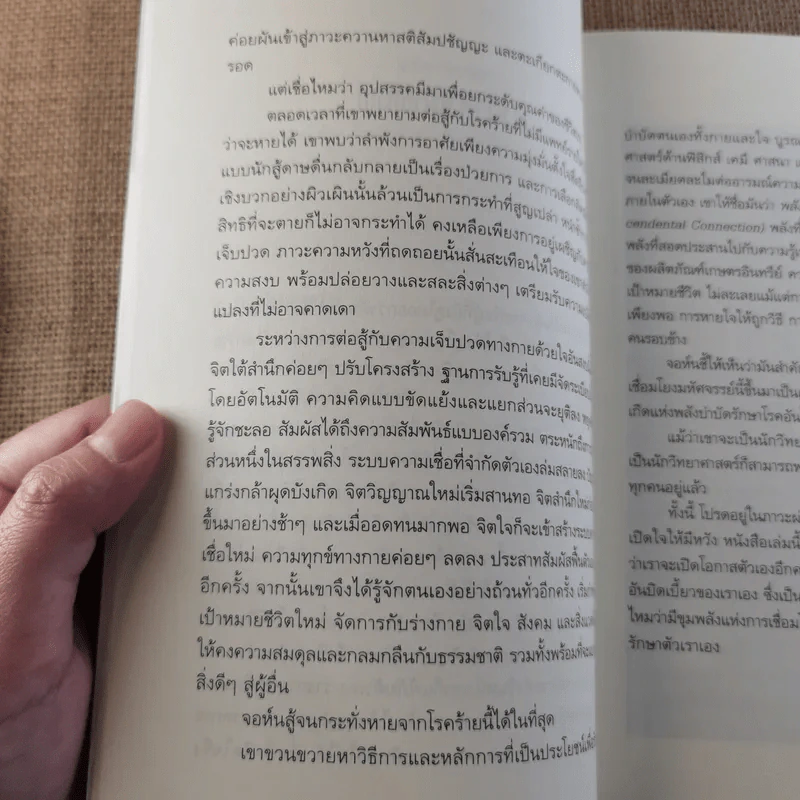 ค่อยผันเข้าสู่ภาวะควานหาสติสัมปชัญญะ และตะเกียกตะกาย
รอด
แต่เชื่อไหมว่า อุปสรรคมีมาเพื่อยกระดับคุณค่าของชีวิต
ตลอดเวลาที่เขาพยายามต่อสู้กับโรคร้ายที่ไม่มีแพทย์
ว่าจะหายได้ เขาพบว่าลำพังการอาศัยเพียงความมุ่งมั่นตั้งใจ
แบบนักสู้ดาษดื่นกลับกลายเป็นเรื่องป่วยการ และการเลือก
เชิงบวกอย่างผิวเผินนั้นล้วนเป็นการกระทำที่สูญเปล่า
สิทธิที่จะตายก็ไม่อาจกระทำได้ คงเหลือเพียงการอยู่เผชิญ
เจ็บปวด ภาวะความหวังที่ถดถอยนั้นสั่นสะเทือนให้ใจของ
ความสงบ พร้อมปล่อยวางและสละสิ่งต่างๆ เตรียมรับความ
แปลงที่ไม่อาจคาดเดา
ระหว่างการต่อสู้กับความเจ็บปวดทางกายด้วยใจ
จิตใต้สำนึกค่อยๆ ปรับโครงสร้าง ฐานการรับรู้ที่เคยมีจัดระเบียบ
โดยอัตโนมัติ ความคิดแบบขัดแย้งและแยกส่วนจะยุติลง
รู้จักชะลอ สัมผัสได้ถึงความสัมพันธ์แบบองค์รวม ตระหนักถึง
ส่วนหนึ่งในสรรพสิ่ง ระบบความเชื่อที่จำกัดตัวเองล่มสลายลง
แกร่งกล้าผุดบังเกิด จิตวิญญาณใหม่เริ่มสานทอ จิตสำนึกใหม่
ขึ้นมาอย่างช้าๆ และเมื่ออดทนมากพอ จิตใจก็จะเข้าสร้างระบบ
เชื่อใหม่ ความทุกข์ทางกายค่อยๆ ลดลง ประสาทสัมผัสฟื้น
อีกครั้ง จากนั้นเขาจึงได้รู้จักตนเองอย่างถ้วนทั่วอีกครั้ง
เป้าหมายชีวิตใหม่ จัดการกับร่างกาย จิตใจ สังคม และ
ให้คงความสมดุลและกลมกลืนกับธรรมชาติ รวมทั้งพร้อมที่จะ
สิ่งดีๆ สู่ผู้อื่น
จอห์นสู้จนกระทั่งหายจากโรคร้ายนี้ได้ในที่สุด
เขาขวนขวายหาวิธีการและหลักการที่เป็นประโยชน์
บำบัดตนเองทั้งกายและใจ
ศาสตร์ด้านฟิสิกส์ เคมี ศาสนา
จนละเมียดละไมต่ออารมณ์ความ
ภายในตัวเอง เขาให้ชื่อมันว่า
cendental Connection) พลังที่
พลังที่สอดประสานไปกับความรู้
ของผลิตภัณฑ์เกษตรอินทรีย์
เป้าหมายชีวิต ไม่ละเลยแม้แต่
เพียงพอ การหายใจให้ถูกวิธี
คนรอบข้าง
จอห์นชี้ให้เห็นว่ามันสำคัญ
เชื่อมโยงมหัศจรรย์นี้ขึ้นมาเป็น
เกิดแห่งพลังบำบัดรักษาโรคอัน
แม้ว่าเขาจะเป็นนักวิทยา
เป็นนักวิทยาศาสตร์ก็สามารถ
ทุกคนอยู่แล้ว
ทั้งนี้ โปรดอยู่ในภาวะ
เปิดใจให้มีหวัง หนังสือเล่มนี้
ว่าเราจะเปิดโอกาสตัวเองอีก
อันบิดเบี้ยวของเราเอง ซึ่งเป็น
ไหมว่ามีขุมพลังแห่งการเชื่อม
รักษาตัวเราเอง